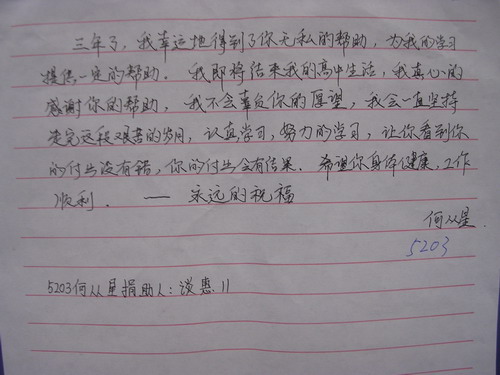 三年了，我幸运地得到了你无私的帮助，为我的学习
提供一定的帮助．我即将结束我的高中生活，我真心的
感谢你的帮助，我不会辜负你的愿望，我会一直坚持
走完这段艰苦的岁月，认真学习，努力的学习，让你看到你
的付出没有错，你的付出会有结果．希望你身体健康，工作
顺利．—— 永远的祝福
何从星
5203
5203何从星捐助人：谈惠．11